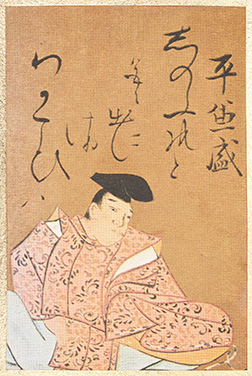 平兼盛
しのふれと
色に
出に
けり
わかこひハ